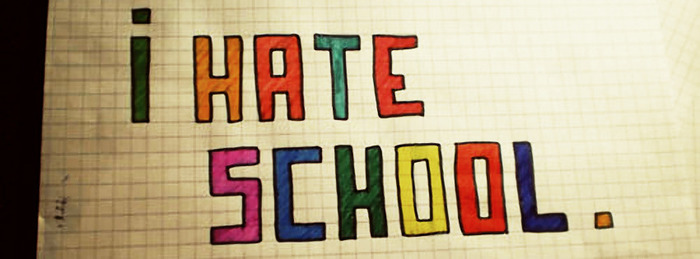 i HATE
SCHOOL.